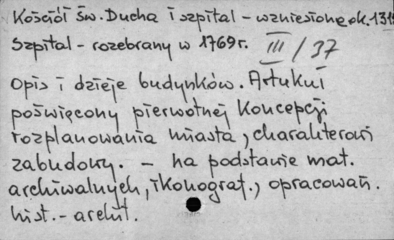 Kościół św. Ducha i szpital - wzniesione ok. 131
Szpital - rozebrany w 1769 r. III / 37
Opis i dzieje budynków. Artukuł
poświęcony pierwotnej koncepcji
rozplanowania miasta, charakterowi
zabudowy. - na podstawie mat.
archiwalnych, ikonograf., opracowań.
hist. - archit.